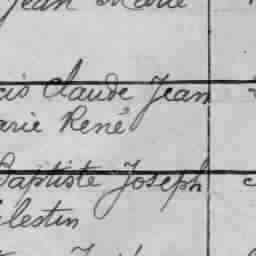 Jean Marie
cis Claude Jean
arie René
Baptiste Joseph
lestin